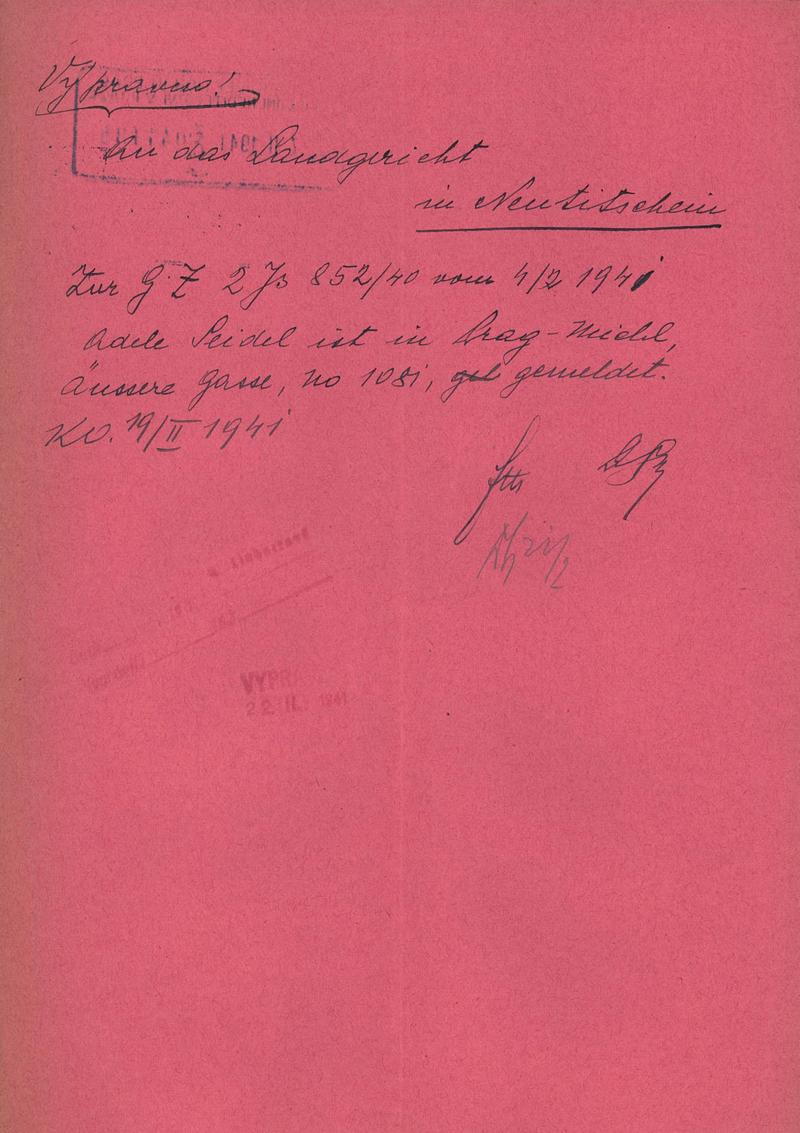 Vypraveno!
An das Landgericht
in Neutitschein
Zur G Z 2 Js 852/40 vom 4/2 1941
Adele Seidel ist in Prag-Michl,
Äussere Gasse, No 1081, gemeldet.
KO. 19/II 1941
21/2
VYPR
22. II. 1941